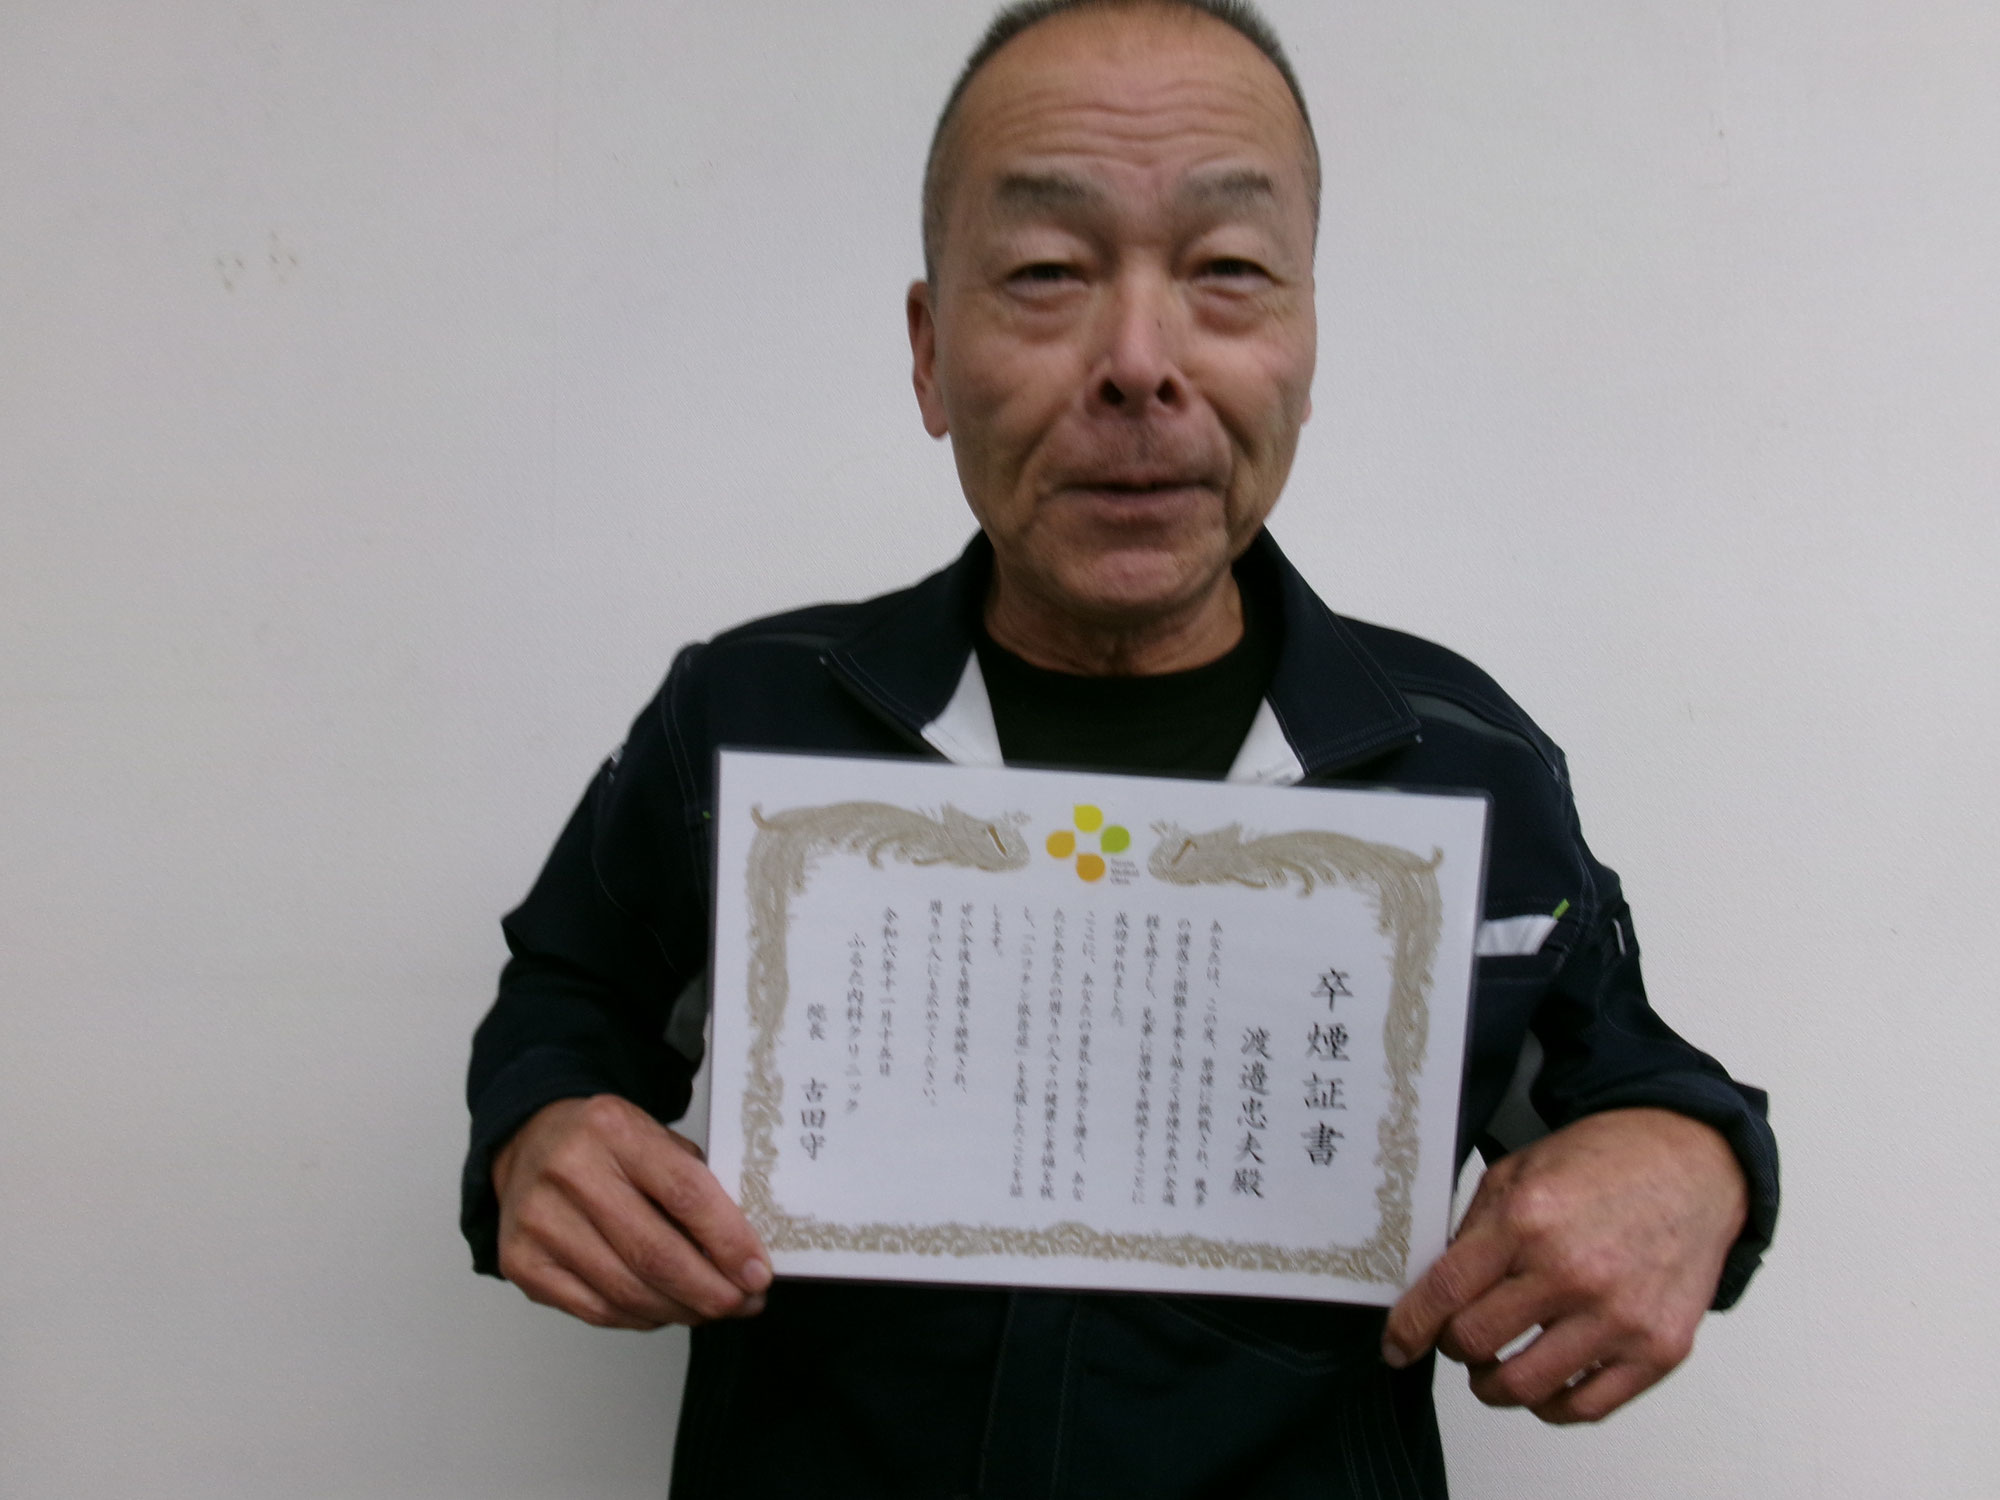 Furuta
Medical
Clinic
卒煙証書
渡邉忠夫殿
あなたは、この度、禁煙に挑戦され、幾多
の誘惑と困難を乗り越えて禁煙外来の全過
程を終了し、見事に禁煙を継続することに
成功されました。
ここに、あなたの勇気と努力を讃え、あな
たとあなたの周りの人々の健康と幸福を祝
し、「ニコチン依存症」を克服したことを証
します。
ぜひ今後も禁煙を継続され、
周りの人にも広めてください。
令和六年十一月十五日
ふるた内科クリニック
院長 古田守